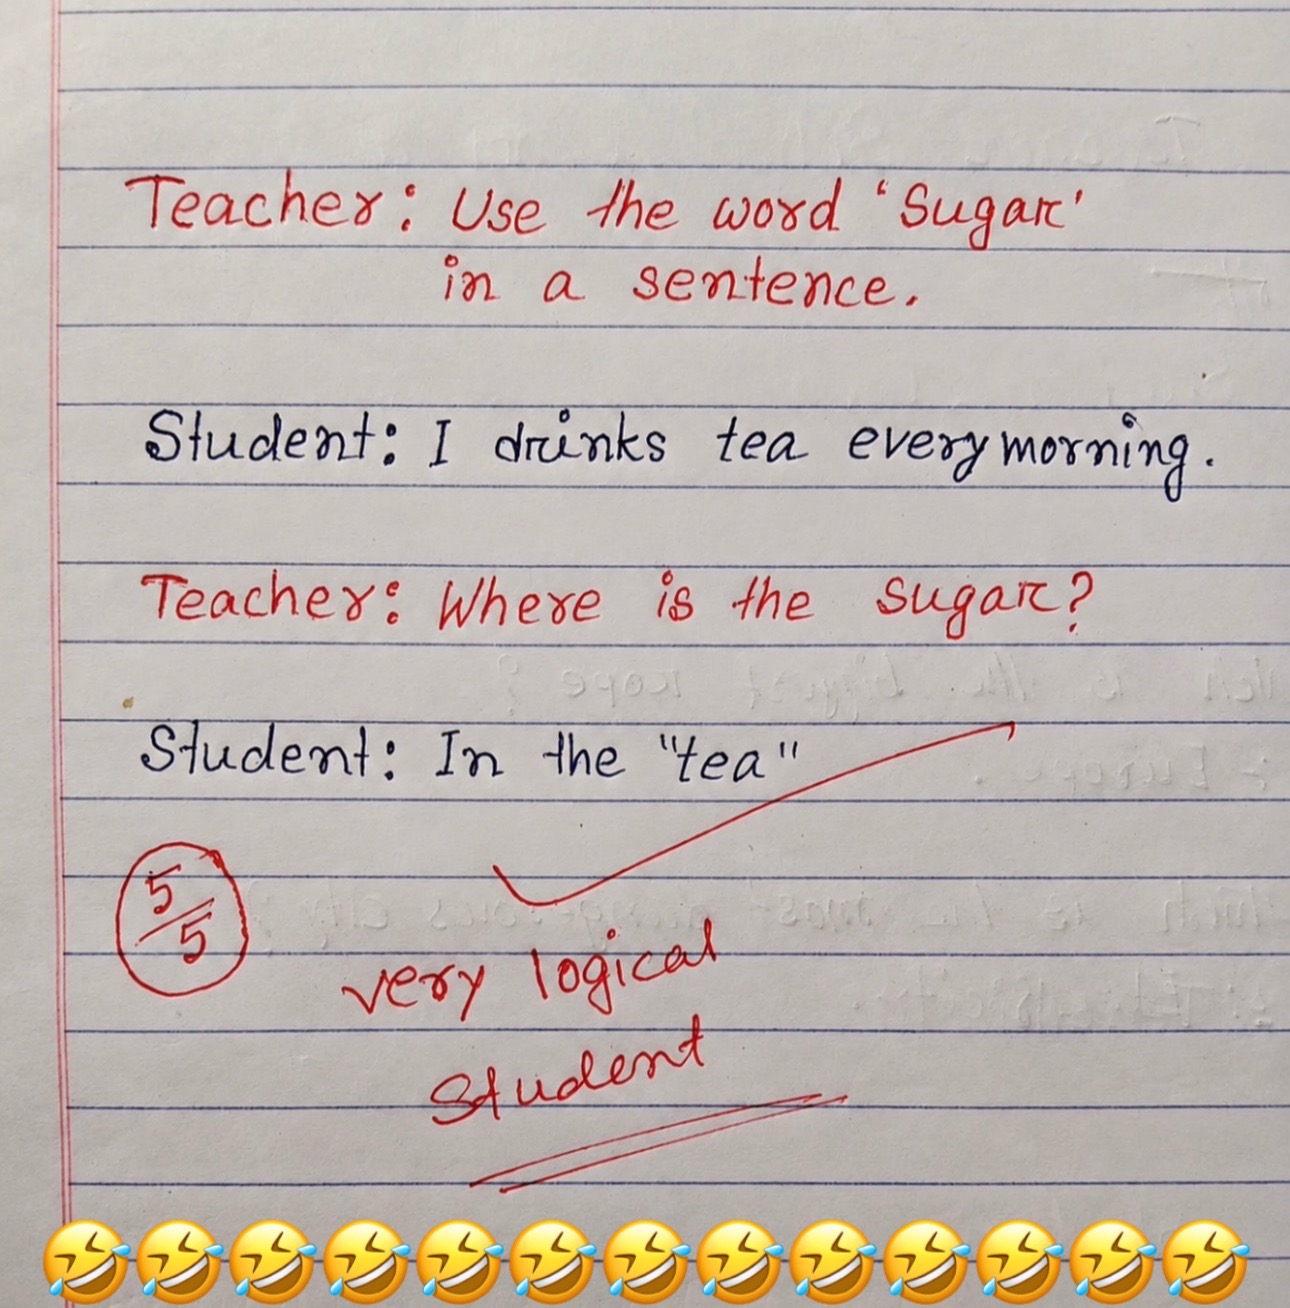 Teacher: Use the word 'Sugar'
in a sentence.
Student: I drinks tea every morning.
Teacher: Where is the sugar?
Student: In the "tea"
5/5
very logical
Student